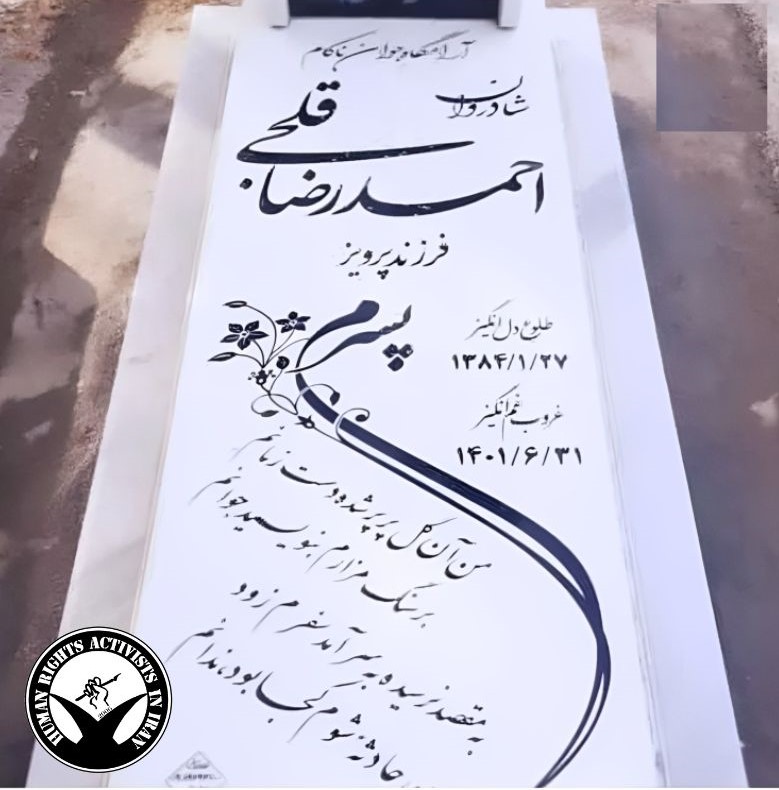 آرامگاه جوان ناکام
شادروان
احمدرضا قلجی
فرزند پرویز
پسرم
طلوع دل انگیز
۱۳۸۴/۱/۲۷
غروب غم انگیز
۱۴۰۱/۶/۳۱
من آن گل پرپر شده دست زمانم
بر سنگ مزارم بنویسید جوانم
به مقصد نرسیده به سر آمد سفرم زود
حادثه شوم کجا بود، ندانم
HUMAN RIGHTS ACTIVISTS IN IRAN
2006